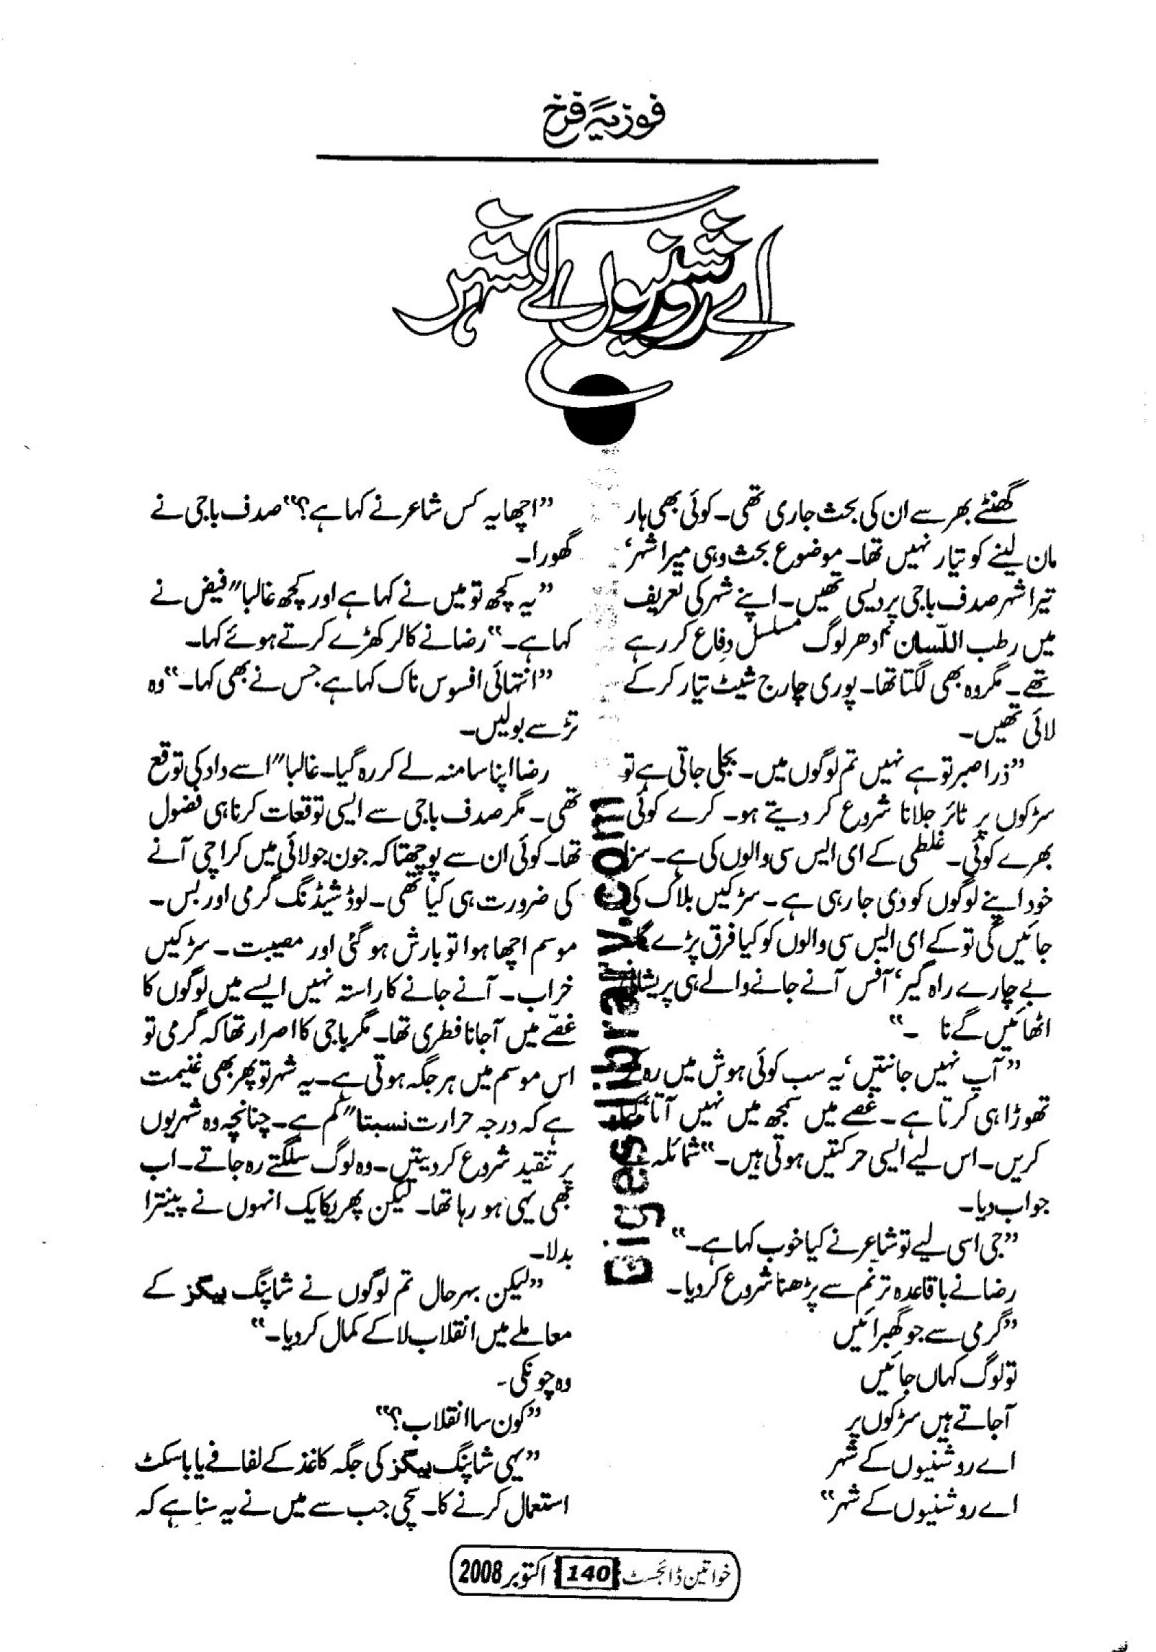 فوزیہ فرخ
اے روشنیوں کے شہر
گھنٹے بھر سے ان کی بحث جاری تھی۔ کوئی بھی ہار
مان لینے کو تیار نہیں تھا۔ موضوع بحث وہی میرا شہر،
تیرا شہر صدف باجی پردیسی تھیں۔ اپنے شہر کی تعریف
میں رطب اللّسان ادھر لوگ مسلسل دفاع کر رہے
تھے۔ مگر وہ بھی لگتا تھا۔ پوری چارج شیٹ تیار کر کے
لائی تھیں۔
”ذرا صبر تو ہے نہیں تم لوگوں میں۔ بجلی جاتی ہے تو
سڑکوں پر ٹائر جلانا شروع کر دیتے ہو۔ کرے کوئی
بھرے کوئی۔ غلطی کے ای ایس سی والوں کی ہے۔ سزا
خود اپنے لوگوں کو دی جا رہی ہے۔ سڑکیں بلاک کی
جائیں گی تو کے ای ایس سی والوں کو کیا فرق پڑے گا۔
بے چارے راہ گیر، آفس آنے جانے والے ہی پریشانی
اٹھائیں گے نا ۔“
”آپ نہیں جانتیں، یہ سب کوئی ہوش میں رہ کر
تھوڑا ہی کرتا ہے۔ غصے میں سمجھ میں نہیں آتا کیا
کریں۔ اس لیے ایسی حرکتیں ہوتی ہیں۔“ شمائلہ نے
جواب دیا۔
”جی اسی لیے تو شاعر نے کیا خوب کہا ہے۔“
رضا نے باقاعدہ ترنم سے پڑھنا شروع کر دیا۔
”گرمی سے جو گھبرائیں
تو لوگ کہاں جائیں
آجاتے ہیں سڑکوں پر
اے روشنیوں کے شہر
اے روشنیوں کے شہر“
”اچھا یہ کس شاعر نے کہا ہے؟“ صدف باجی نے
گھورا۔
”یہ کچھ تو میں نے کہا ہے اور کچھ غالبا″ فیض نے
کہا ہے۔“ رضا نے کالر کھڑے کرتے ہوئے کہا۔
”انتہائی افسوس ناک کہا ہے جس نے بھی کہا۔“ وہ
تڑ سے بولیں۔
رضا اپنا سا منہ لے کر رہ گیا۔ غالبا″ اسے داد کی توقع
تھی۔ مگر صدف باجی سے ایسی توقعات کرنا ہی فضول
تھا۔ کوئی ان سے پوچھتا کہ جون جولائی میں کراچی آنے
کی ضرورت ہی کیا تھی۔ لوڈ شیڈنگ گرمی اور بس۔
موسم اچھا ہوا تو بارش ہو گئی اور مصیبت۔ سڑکیں
خراب۔ آنے جانے کا راستہ نہیں ایسے میں لوگوں کا
غصّے میں آجانا فطری تھا۔ مگر باجی کا اصرار تھا کہ گرمی تو
اس موسم میں ہر جگہ ہوتی ہے۔ یہ شہر تو پھر بھی غنیمت
ہے کہ درجہ حرارت نسبتا″ کم ہے۔ چنانچہ وہ شہریوں
پر تنقید شروع کر دیتیں۔ وہ لوگ سلگتے رہ جاتے۔ اب
بھی یہی ہو رہا تھا۔ لیکن پھر یکایک انہوں نے پینترا
بدلا۔
”لیکن بہرحال تم لوگوں نے شاپنگ بیگز کے
معاملے میں انقلاب لا کے کمال کر دیا۔“
وہ چونکی۔
”کون سا انقلاب؟“
”یہی شاپنگ بیگز کی جگہ کاغذ کے لفافے یا باسکٹ
استعمال کرنے کا۔ سچی جب سے میں نے یہ سنا ہے کہ
Digestlibrary.com
خواتین ڈائجسٹ 140 اکتوبر 2008